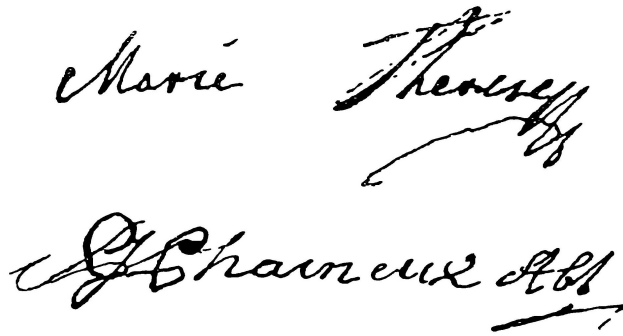 Marie Therese
Chaineux Abt